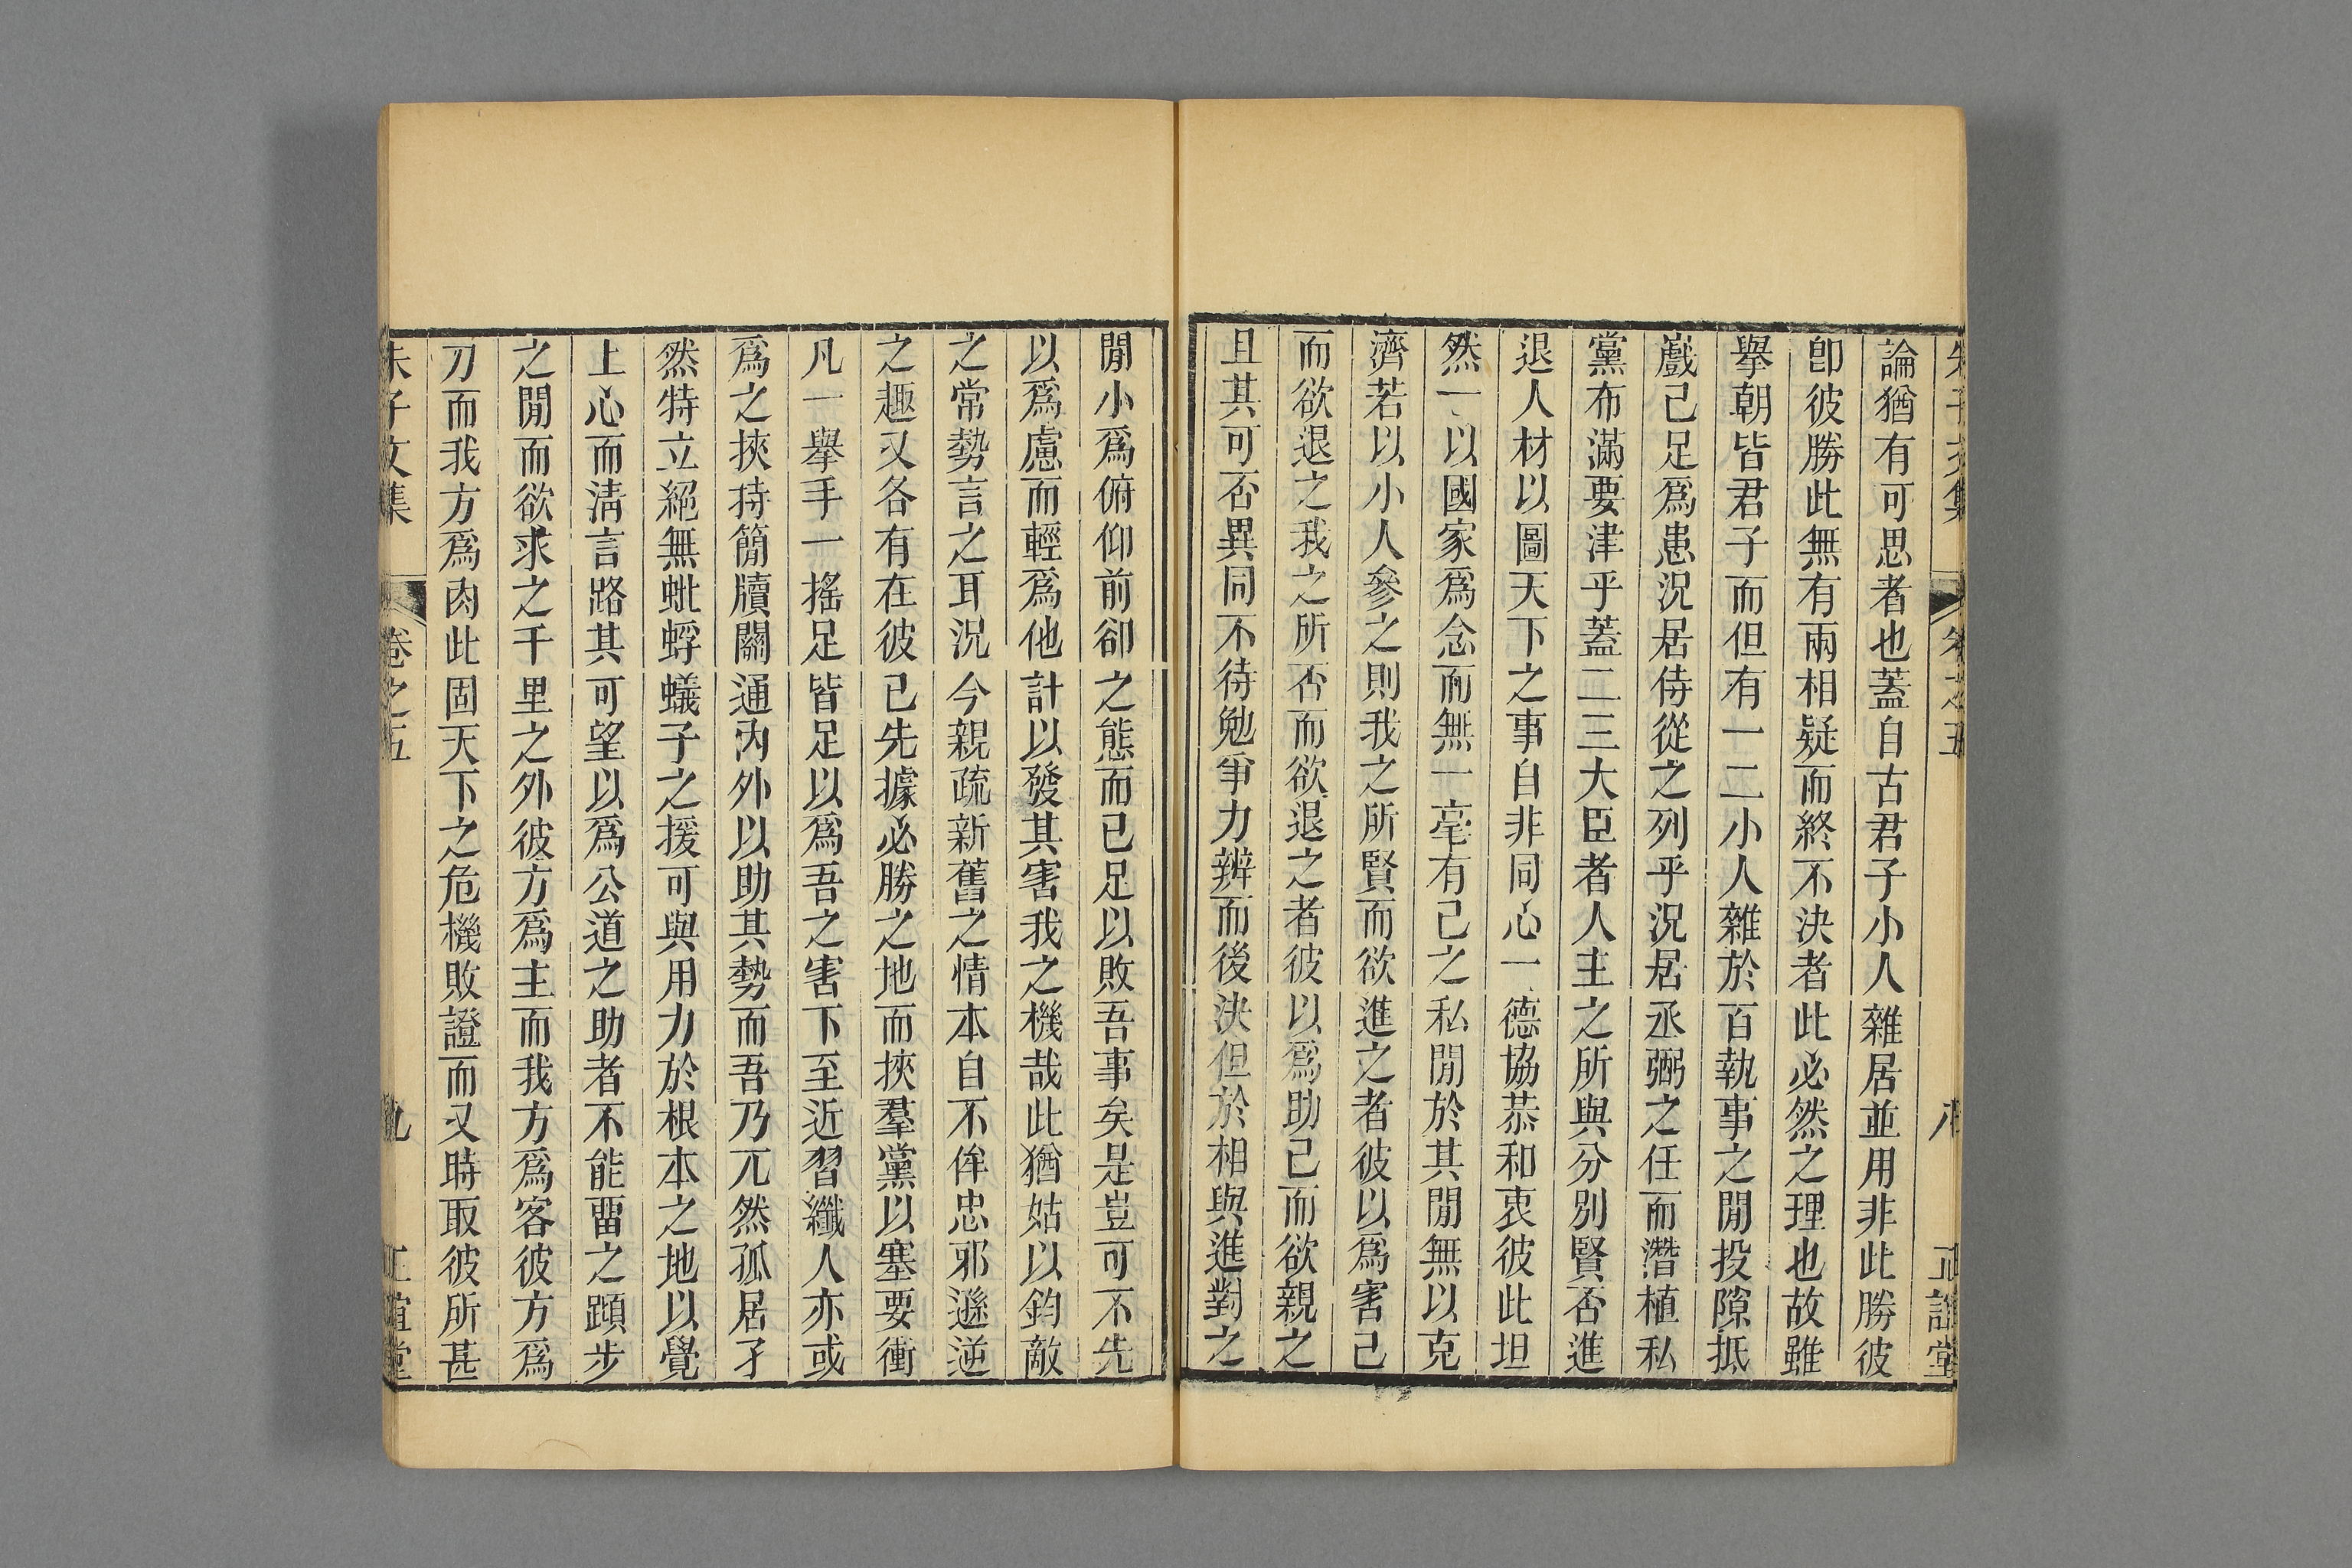 朱子文集 卷之五 八 正誼堂
論猶有可思者也蓋自古君子小人雜居並用非此勝彼
卽彼勝此無有兩相疑而終不決者此必然之理也故雖
舉朝皆君子而但有一二小人雜於百執事之閒投隙抵
戲己足爲患況居侍從之列乎況居丞弼之任而潛植私
黨布滿要津乎蓋二三大臣者人主之所與分別賢否進
退人材以圖天下之事自非同心一德協恭和衷彼此坦
然一以國家爲念而無一毫有己之私閒於其閒無以克
濟若以小人參之則我之所賢而欲進之者彼以爲害己
而欲退之我之所否而欲退之者彼以爲助己而欲親之
且其可否異同不待勉爭力辨而後決但於相與進對之
閒小爲俯仰前卻之態而已足以敗吾事矣是豈可不先
以爲慮而輕爲他計以發其害我之機哉此猶姑以鈞敵
之常勢言之耳況今親疏新舊之情本自不侔忠邪遜逆
之趣又各有在彼已先據必勝之地而挾羣黨以塞要衝
凡一舉手一搖足皆足以爲吾之害下至近習纖人亦或
爲之挾持簡牘關通內外以助其勢而吾乃兀然孤居孑
然特立絕無蚍蜉蟻子之援可與用力於根本之地以覺
上心而淸言路其可望以爲公道之助者不能畱之蹞步
之閒而欲求之千里之外彼方爲主而我方爲客彼方爲
刀而我方爲肉此固天下之危機敗證而又時取彼所甚
朱子文集 卷之五 九 正誼堂